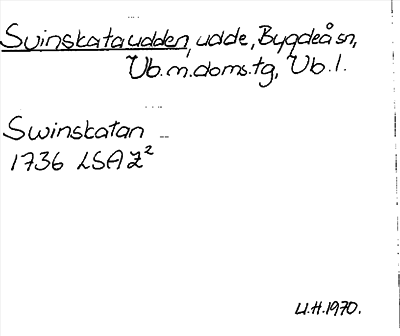 Svinskataudden, udde, Bygdeå sn,
Vb.m.doms.tg, Vb.l.
Swinskatan
1736 LSA Z²
U.H.1970.